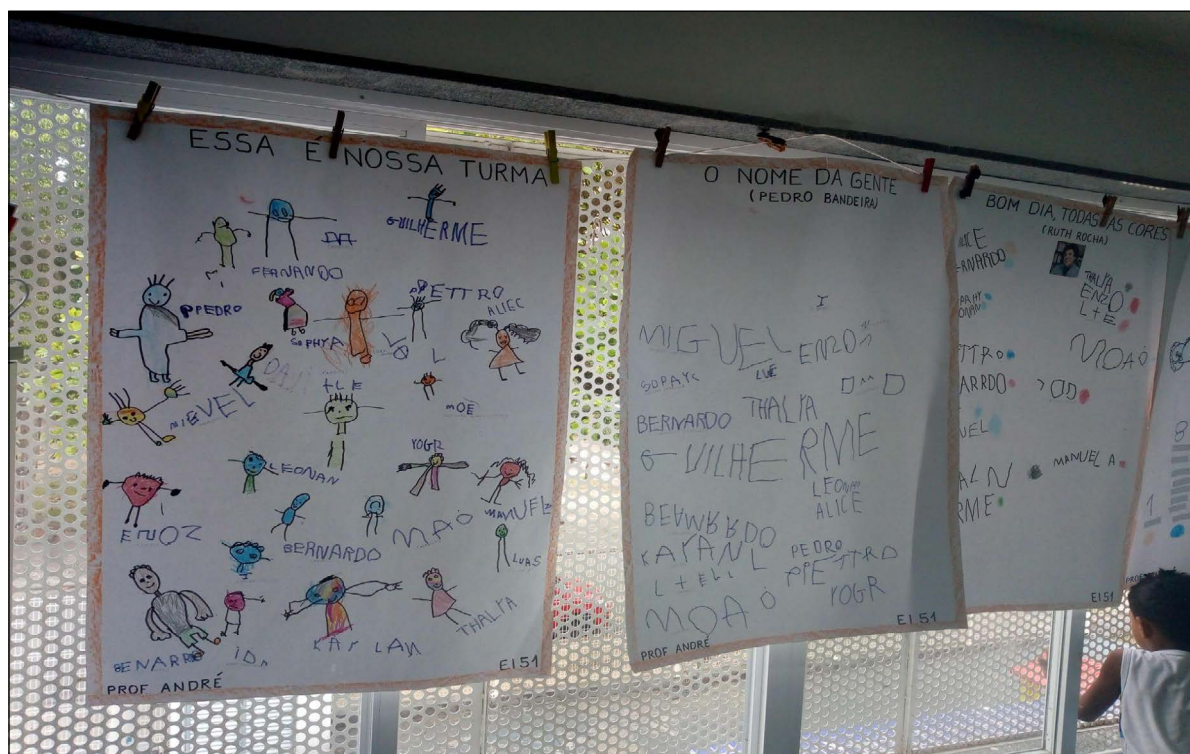 ESSA É NOSSA TURMA
GUILHERME
FERNANDO
PPEDRO
PETTRO
ALIEC
SOPHYA
MIGUEL
tLE
MOE
YOGR
LEONAN
MANUEL
ENOZ
BERNARDO
MAÓ
LUAS
BENARRO
KAYLAN
THALYA
PROF ANDRÉ
EI 51
O NOME DA GENTE
(PEDRO BANDEIRA)
MIGUEL
ENZO
SOPAYC
LUE
BERNARDO
THALYA
GUILHERME
LEONAN
ALICE
BEAWRRDO
KAYANL
PEDRO
PIETTRO
LtELL
YOGR
MOAÓ
PROF ANDRÉ
EI 51
BOM DIA, TODAS AS CORES
(RUTH ROCHA)
THALYA
ENZO
LtE
MOAÓ
MANUEL A
EI 51